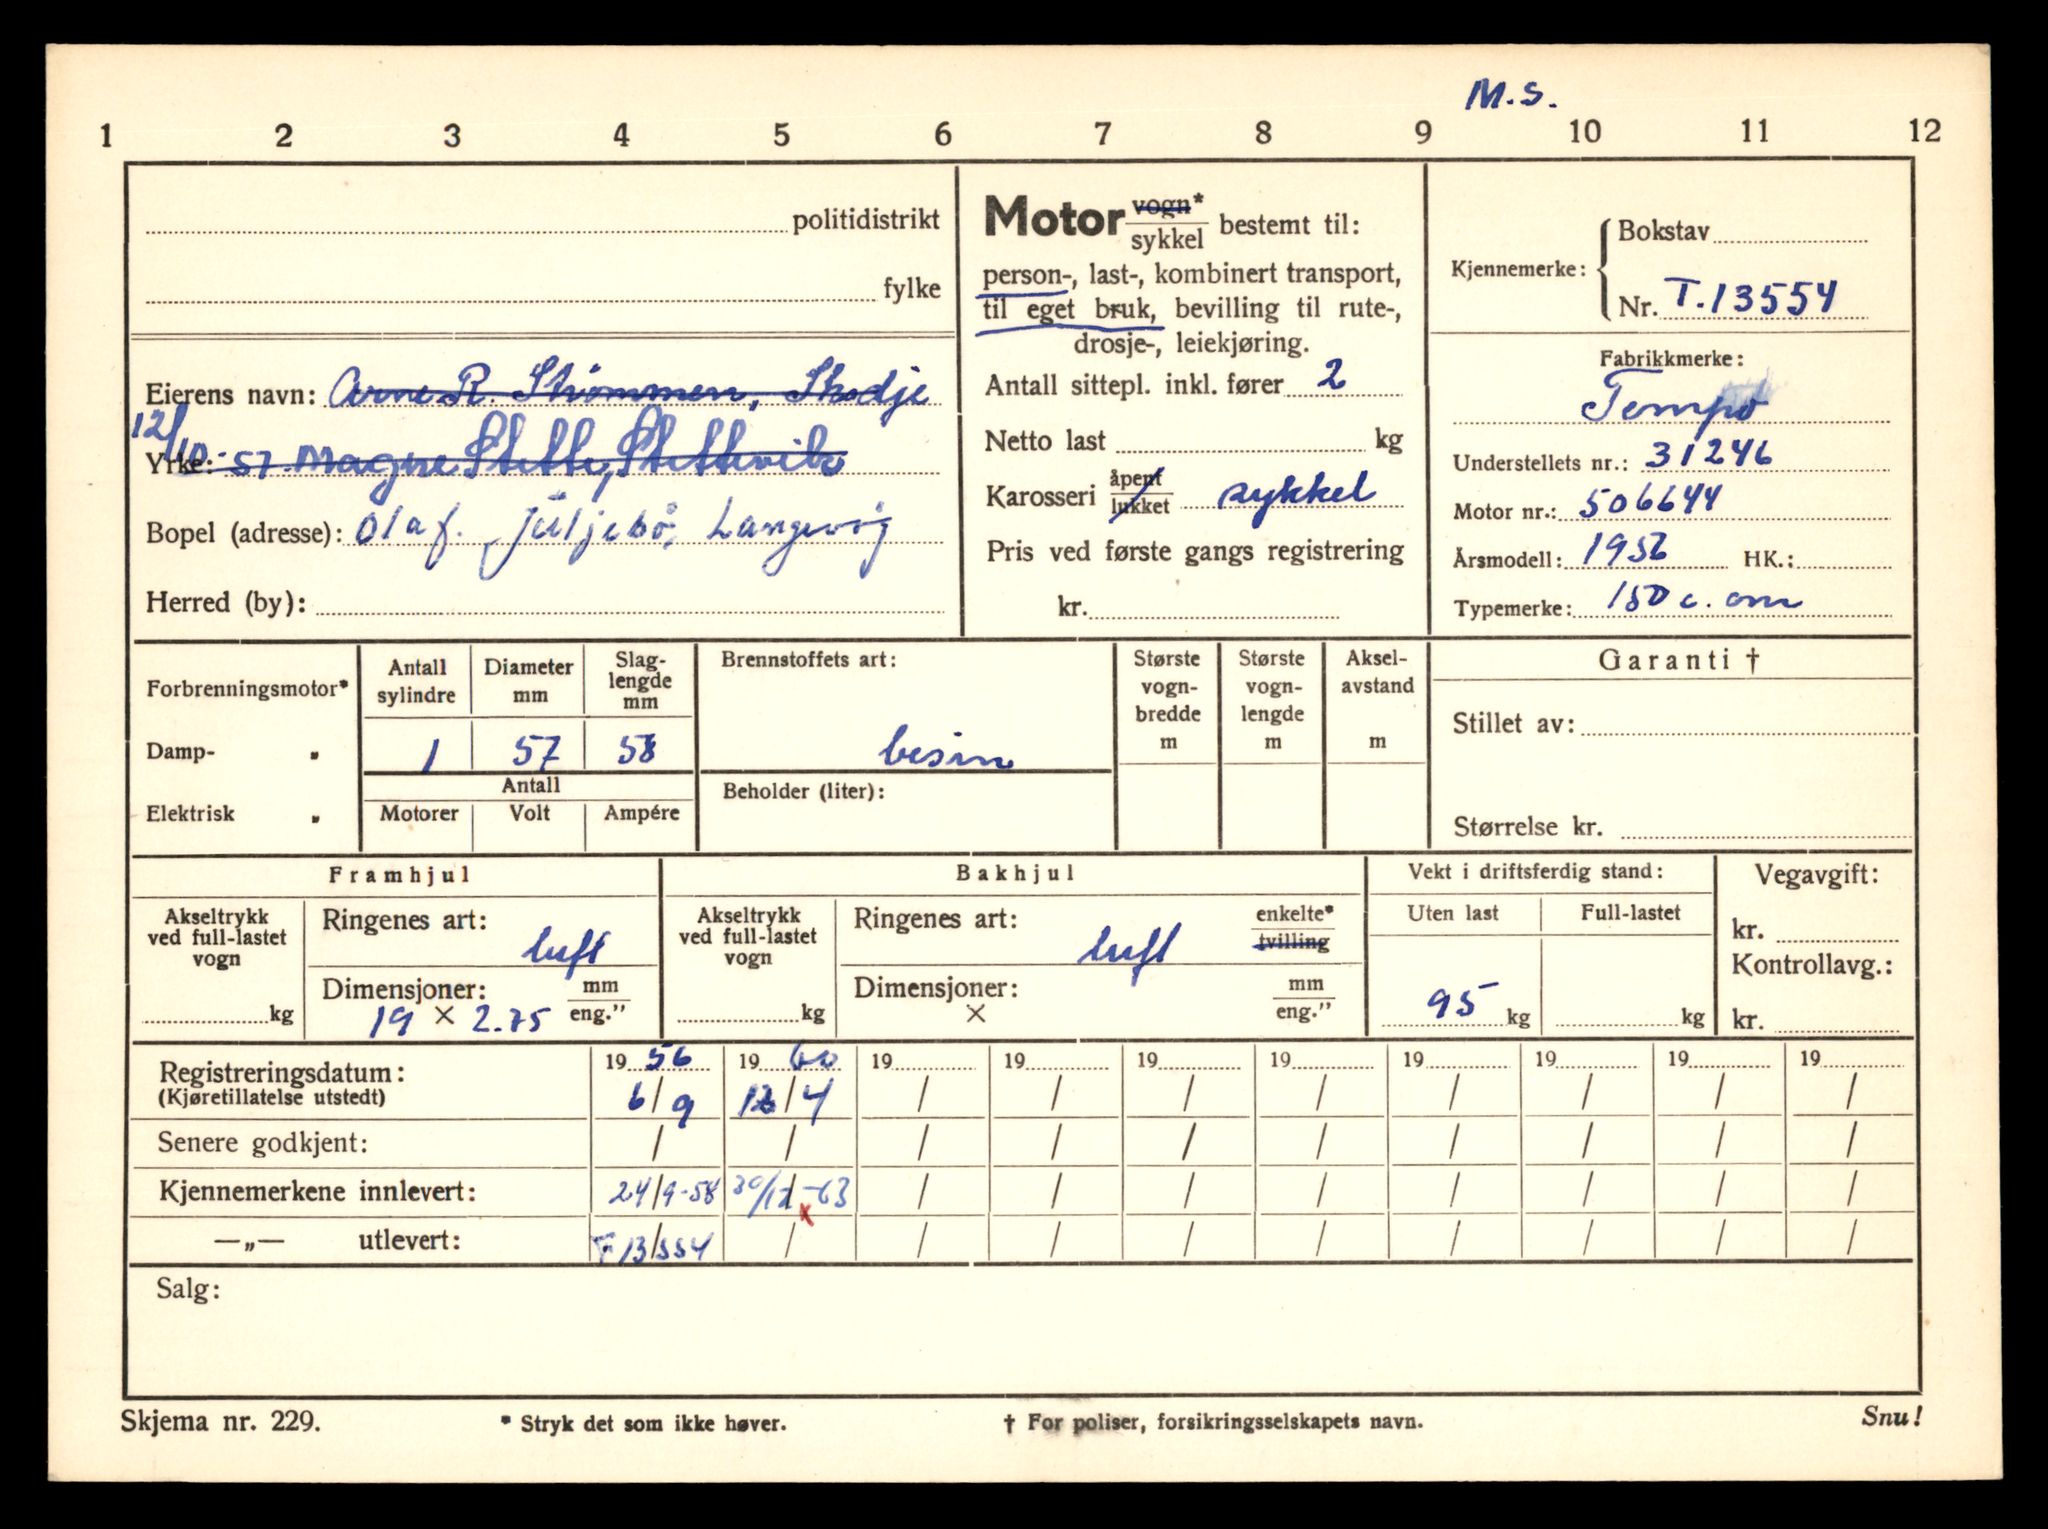 M.S.
1 2 3 4 5 6 7 8 9 10 11 12
politidistrikt
fylke
Eierens navn: Arne R. Strømmen, Skodje
12/10-57 Magne Stette, Stettevik
Yrke:
Bopel (adresse): Olaf. Juljebø, Langevåg
Herred (by):
Motor vogn* / sykkel bestemt til:
person-, last-, kombinert transport,
til eget bruk, bevilling til rute-,
drosje-, leiekjøring.
Antall sittepl. inkl. fører 2
Netto last kg
Karosseri åpent / lukket sykkel
Pris ved første gangs registrering
kr.
Kjennemerke: Bokstav
Nr. T.13554
Fabrikkmerke:
Tempo
Understellets nr.: 31246
Motor nr.: 506644
Årsmodell: 1956 HK.:
Typemerke: 150 c.cm
Forbrenningsmotor*
Damp- „
Elektrisk „
Antall sylindre Diameter mm Slag-lengde mm
1 57 58
Antall
Motorer Volt Ampére
Brennstoffets art:
besin
Beholder (liter):
Største vogn-bredde m
Største vogn-lengde m
Aksel-avstand m
Garanti †
Stillet av:
Størrelse kr.
Framhjul
Akseltrykk ved full-lastet vogn
kg
Ringenes art:
luft
Dimensjoner: mm / eng."
19 × 2.75
Bakhjul
Akseltrykk ved full-lastet vogn
kg
Ringenes art: enkelte* / tvilling
luft
Dimensjoner: mm / eng."
×
Vekt i driftsferdig stand:
Uten last Full-lastet
95 kg kg
Vegavgift:
kr.
Kontrollavg.:
kr.
Registreringsdatum: 19 56 19 60 19 19 19 19 19 19 19 19
(Kjøretillatelse utstedt) 6/9 12/4 / / / / / / / /
Senere godkjent: / / / / / / / / / /
Kjennemerkene innlevert: 24/9-58 30/12-63 x / / / / / / / /
—„— utlevert: T 13/554 / / / / / / / / /
Salg:
Skjema nr. 229. * Stryk det som ikke høver. † For poliser, forsikringsselskapets navn. Snu!